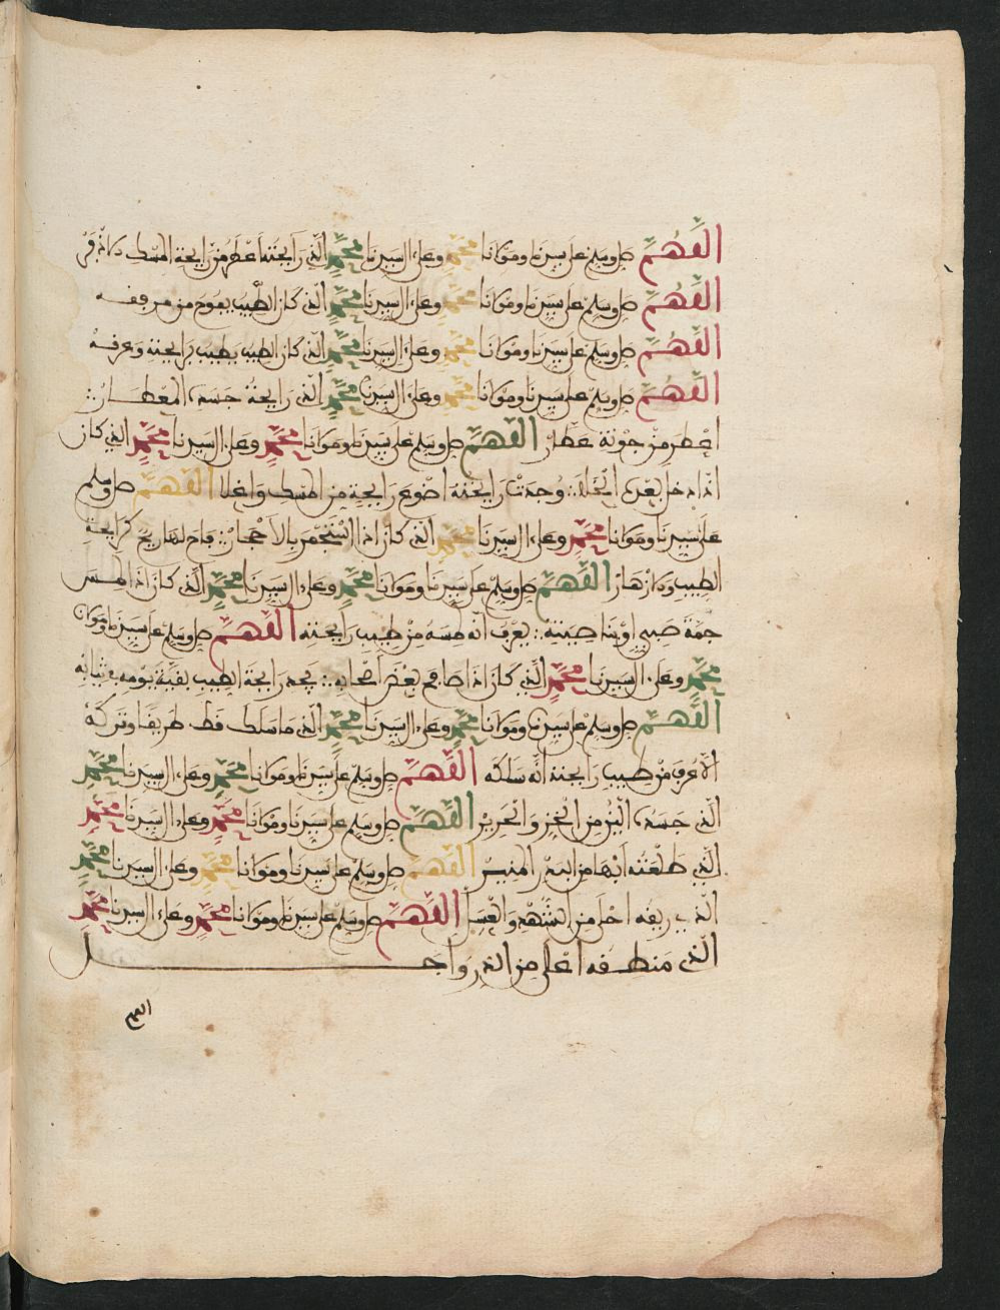 اللهم صل وسلم على سيدنا ومولانا محمد وعلى ءال سيدنا محمد الذى رايحته اعطر من رايحة المسك
اللهم صل وسلم على سيدنا ومولانا محمد وعلى ءال سيدنا محمد الذى كان الطيب يفوح من
اللهم صل وسلم على سيدنا ومولانا محمد وعلى ءال سيدنا محمد الذى كان الطيب يطيب برايحته وعرفه
اللهم صل وسلم على سيدنا ومولانا محمد وعلى ءال سيدنا محمد الذى رايحة جسده المعطار
اعطر من جونة عطار اللهم صل وسلم على سيدنا ومولانا محمد وعلى ءال سيدنا محمد الذى كان
اذا دخل وجدت رايحته اضوع رايحة من المسك واغلا اللهم صل وسلم
على سيدنا ومولانا محمد وعلى ءال سيدنا محمد الذى كان اذا استجمر بالاحجار
الطيب اللهم صل وسلم على سيدنا ومولانا محمد وعلى ءال سيدنا محمد الذى كان اذا لمس
جمة صبي او يعرف انه لمسه من طيب رايحته اللهم صل وسلم على سيدنا ومولانا
محمد وعلى ءال سيدنا محمد الذى كان اذا صافح بعض اصحابه يجد رايحة الطيب بقية يومه في ثيابه
اللهم صل وسلم على سيدنا ومولانا محمد وعلى ءال سيدنا محمد الذى ما سلك قط طريقا وتركه
الا عرف من طيب رايحته انه سلكه اللهم صل وسلم على سيدنا ومولانا محمد وعلى ءال سيدنا محمد
الذى جسده الين من الخز والحرير اللهم صل وسلم على سيدنا ومولانا محمد وعلى ءال سيدنا محمد
الذى طلعته ابها من البدر المنير اللهم صل وسلم على سيدنا ومولانا محمد وعلى ءال سيدنا محمد
الذى ريقه احلى من الشهد والعسل اللهم صل وسلم على سيدنا ومولانا محمد وعلى ءال سيدنا محمد
الذى منطقه اغلى من الدر واجل
اللهم